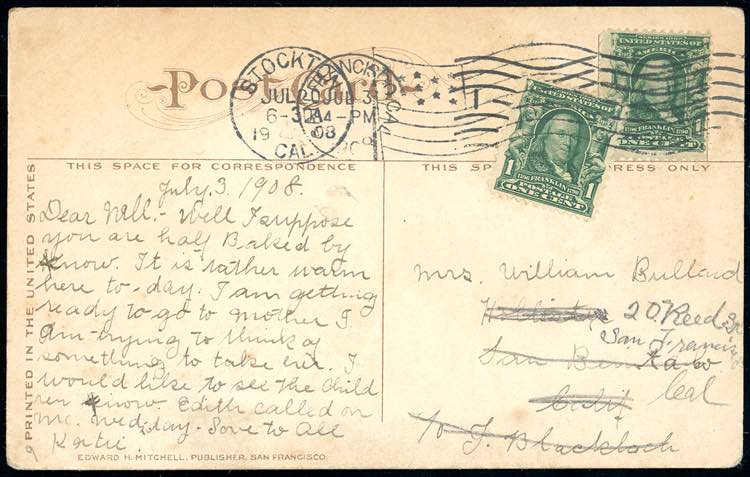 Post Card
STOCKTON
JUL 20
6-30
1908
CAL.
SAN FRANCISCO, CAL.
JUL 3
4-PM
1908
SERIES 1902
UNITED STATES OF
AMERICA
1706 FRANKLIN 1790
POSTAGE
ONE CENT
UNITED STATES OF
1
1
1706 FRANKLIN 1790
POSTAGE
ONE CENT
THIS SPACE FOR CORRESPONDENCE
THIS SP PRESS ONLY
PRINTED IN THE UNITED STATES
July 3, 1908
Dear Nell.- Well I suppose
you are half Baked by
know. It is rather warm
here to-day. I am getting
ready to go to mother I
am trying to think of
something to take her. I
would like to see the child
ren know. Edith called on
me. Wed,day - Love to All
Katie
Mrs. William Bullard
Hollister
20. Reed
San Francisco
San Benito
Cal
Calif
c/o J. Blacklock
EDWARD H. MITCHELL, PUBLISHER, SAN FRANCISCO.